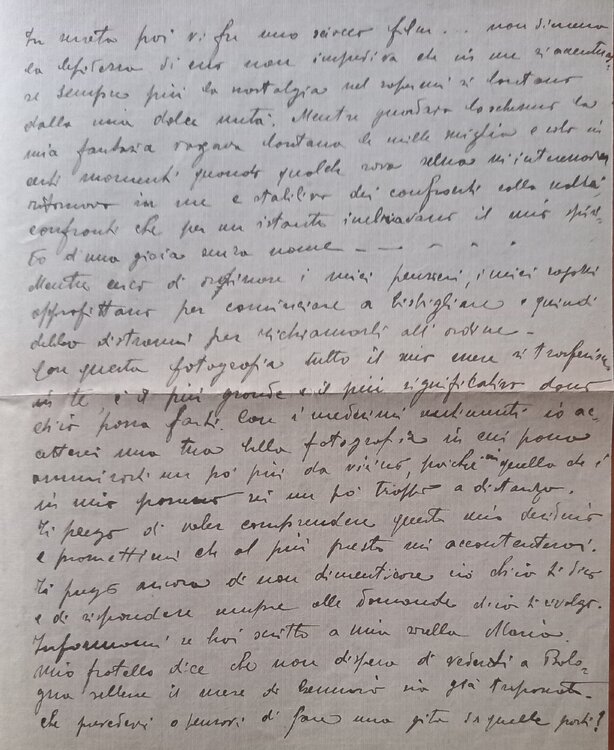 In serata poi vi fu uno sciocco film... non dimeno
la di esso non impediva che in me si accentuas=
se sempre più la nostalgia nel sapermi sì lontano
dalla mia dolce metà. Mentre guardavo lo schermo la
mia fantasia vagava lontano le mille miglia e solo in
certi momenti quando qualche cosa m'interessava
ritornavo in me e stabilivo dei confronti colla realtà
confronti che per un istante inebriavano il mio spiri-
to d'una gioia senza nome - - - - -
Mentre cerco di esprimere i miei pensieri, i miei
approfittano per cominciare a bisbigliare e quindi
debbo distrarmi per richiamarli all'ordine -
Con questa fotografia tutto il mio essere si trasferisce
in te, è il più grande e il più significativo dono
ch'io possa farti. Con i medesimi sentimenti io ac-
cetterei una tua bella fotografia in cui possa
ammirarti un po' più da vicino, poichè in quella che è
in mio possesso sei un po' troppo a distanza.
Ti prego di voler comprendere questo mio desiderio
e promettimi che al più presto mi accontenterai.
Ti prego ancora di non dimenticare ciò ch'io ti dico
e di rispondere sempre alle domande ch'io ti rivolgo.
Informami se hai scritto a mia sorella Maria.
Mio fratello dice che non dispera di vederti a Bolo=
gna sebbene il mese di Gennaio sia già trapassato.
che prevedevi o pensavi di fare una gita da quelle parti?